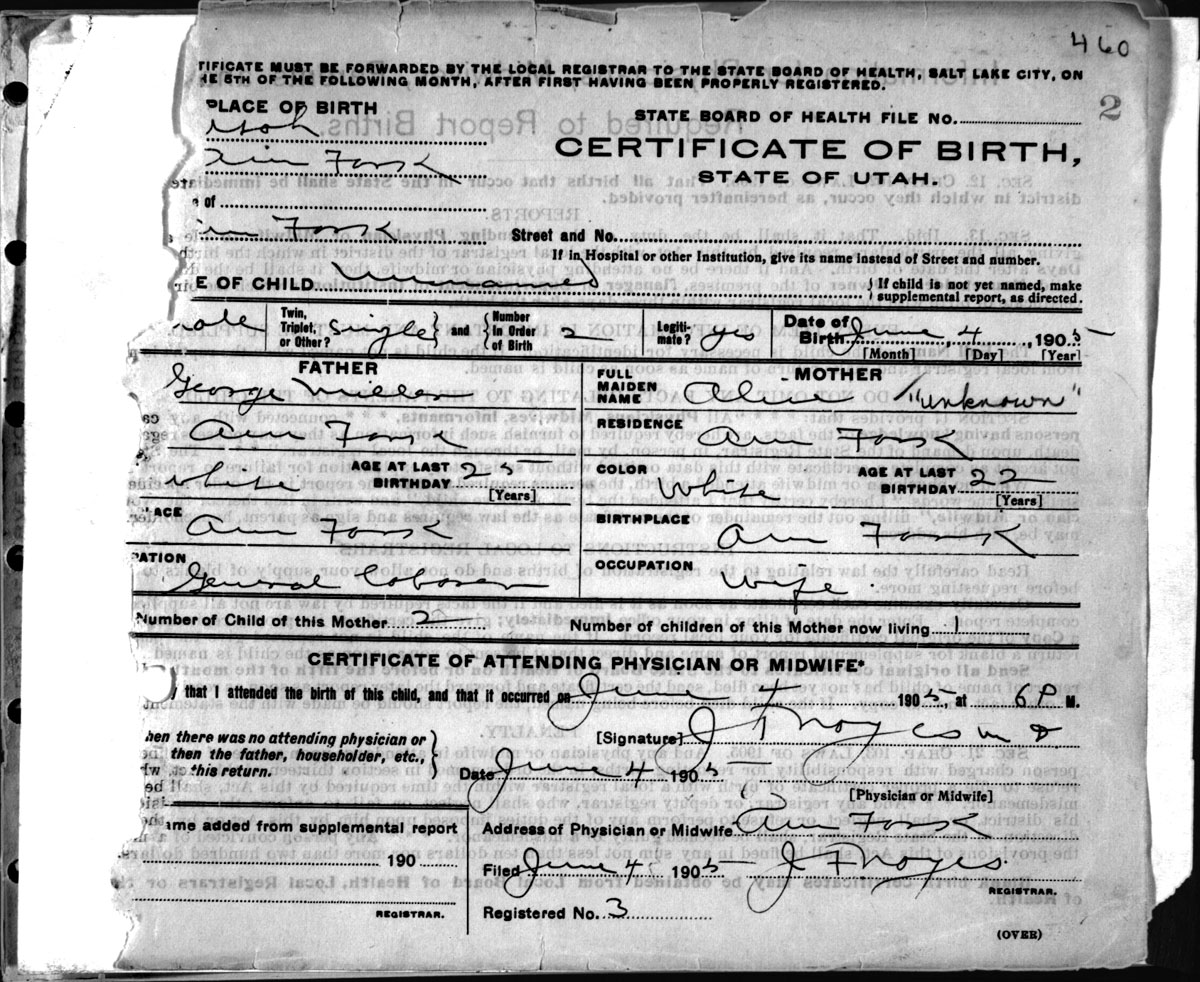 460
TIFICATE MUST BE FORWARDED BY THE LOCAL REGISTRAR TO THE STATE BOARD OF HEALTH, SALT LAKE CITY, ON
HE 5TH OF THE FOLLOWING MONTH, AFTER FIRST HAVING BEEN PROPERLY REGISTERED.
2
PLACE OF BIRTH
STATE BOARD OF HEALTH FILE NO.
CERTIFICATE OF BIRTH,
Fork
STATE OF UTAH.
of
Fork Street and No.
If in Hospital or other Institution, give its name instead of Street and number.
E OF CHILD Unnamed } If child is not yet named, make supplemental report, as directed.
Twin, Triplet, or Other? Single } and { Number in Order of Birth 2 Legiti-mate? yes Date of Birth June 4, 1905
[Month] [Day] [Year]
FATHER MOTHER
George FULL MAIDEN NAME "unknown"
Am Fork RESIDENCE Am Fork
white AGE AT LAST BIRTHDAY 25 [Years] COLOR White AGE AT LAST BIRTHDAY 22 [Years]
LACE Am Fork BIRTHPLACE Am Fork
PATION General Laborer OCCUPATION Wife
Number of Child of this Mother 2 Number of children of this Mother now living
CERTIFICATE OF ATTENDING PHYSICIAN OR MIDWIFE*
y that I attended the birth of this child, and that it occurred on June 4 1905, at 6 P M.
hen there was no attending physician or
then the father, householder, etc.,
this return.
[Signature] J F Noyes M D
Date June 4 1905
[Physician or Midwife]
ame added from supplemental report Address of Physician or Midwife Am Fork
190 Filed June 4 1905 J F Noyes
REGISTRAR.
REGISTRAR. Registered No. 3
(OVER)